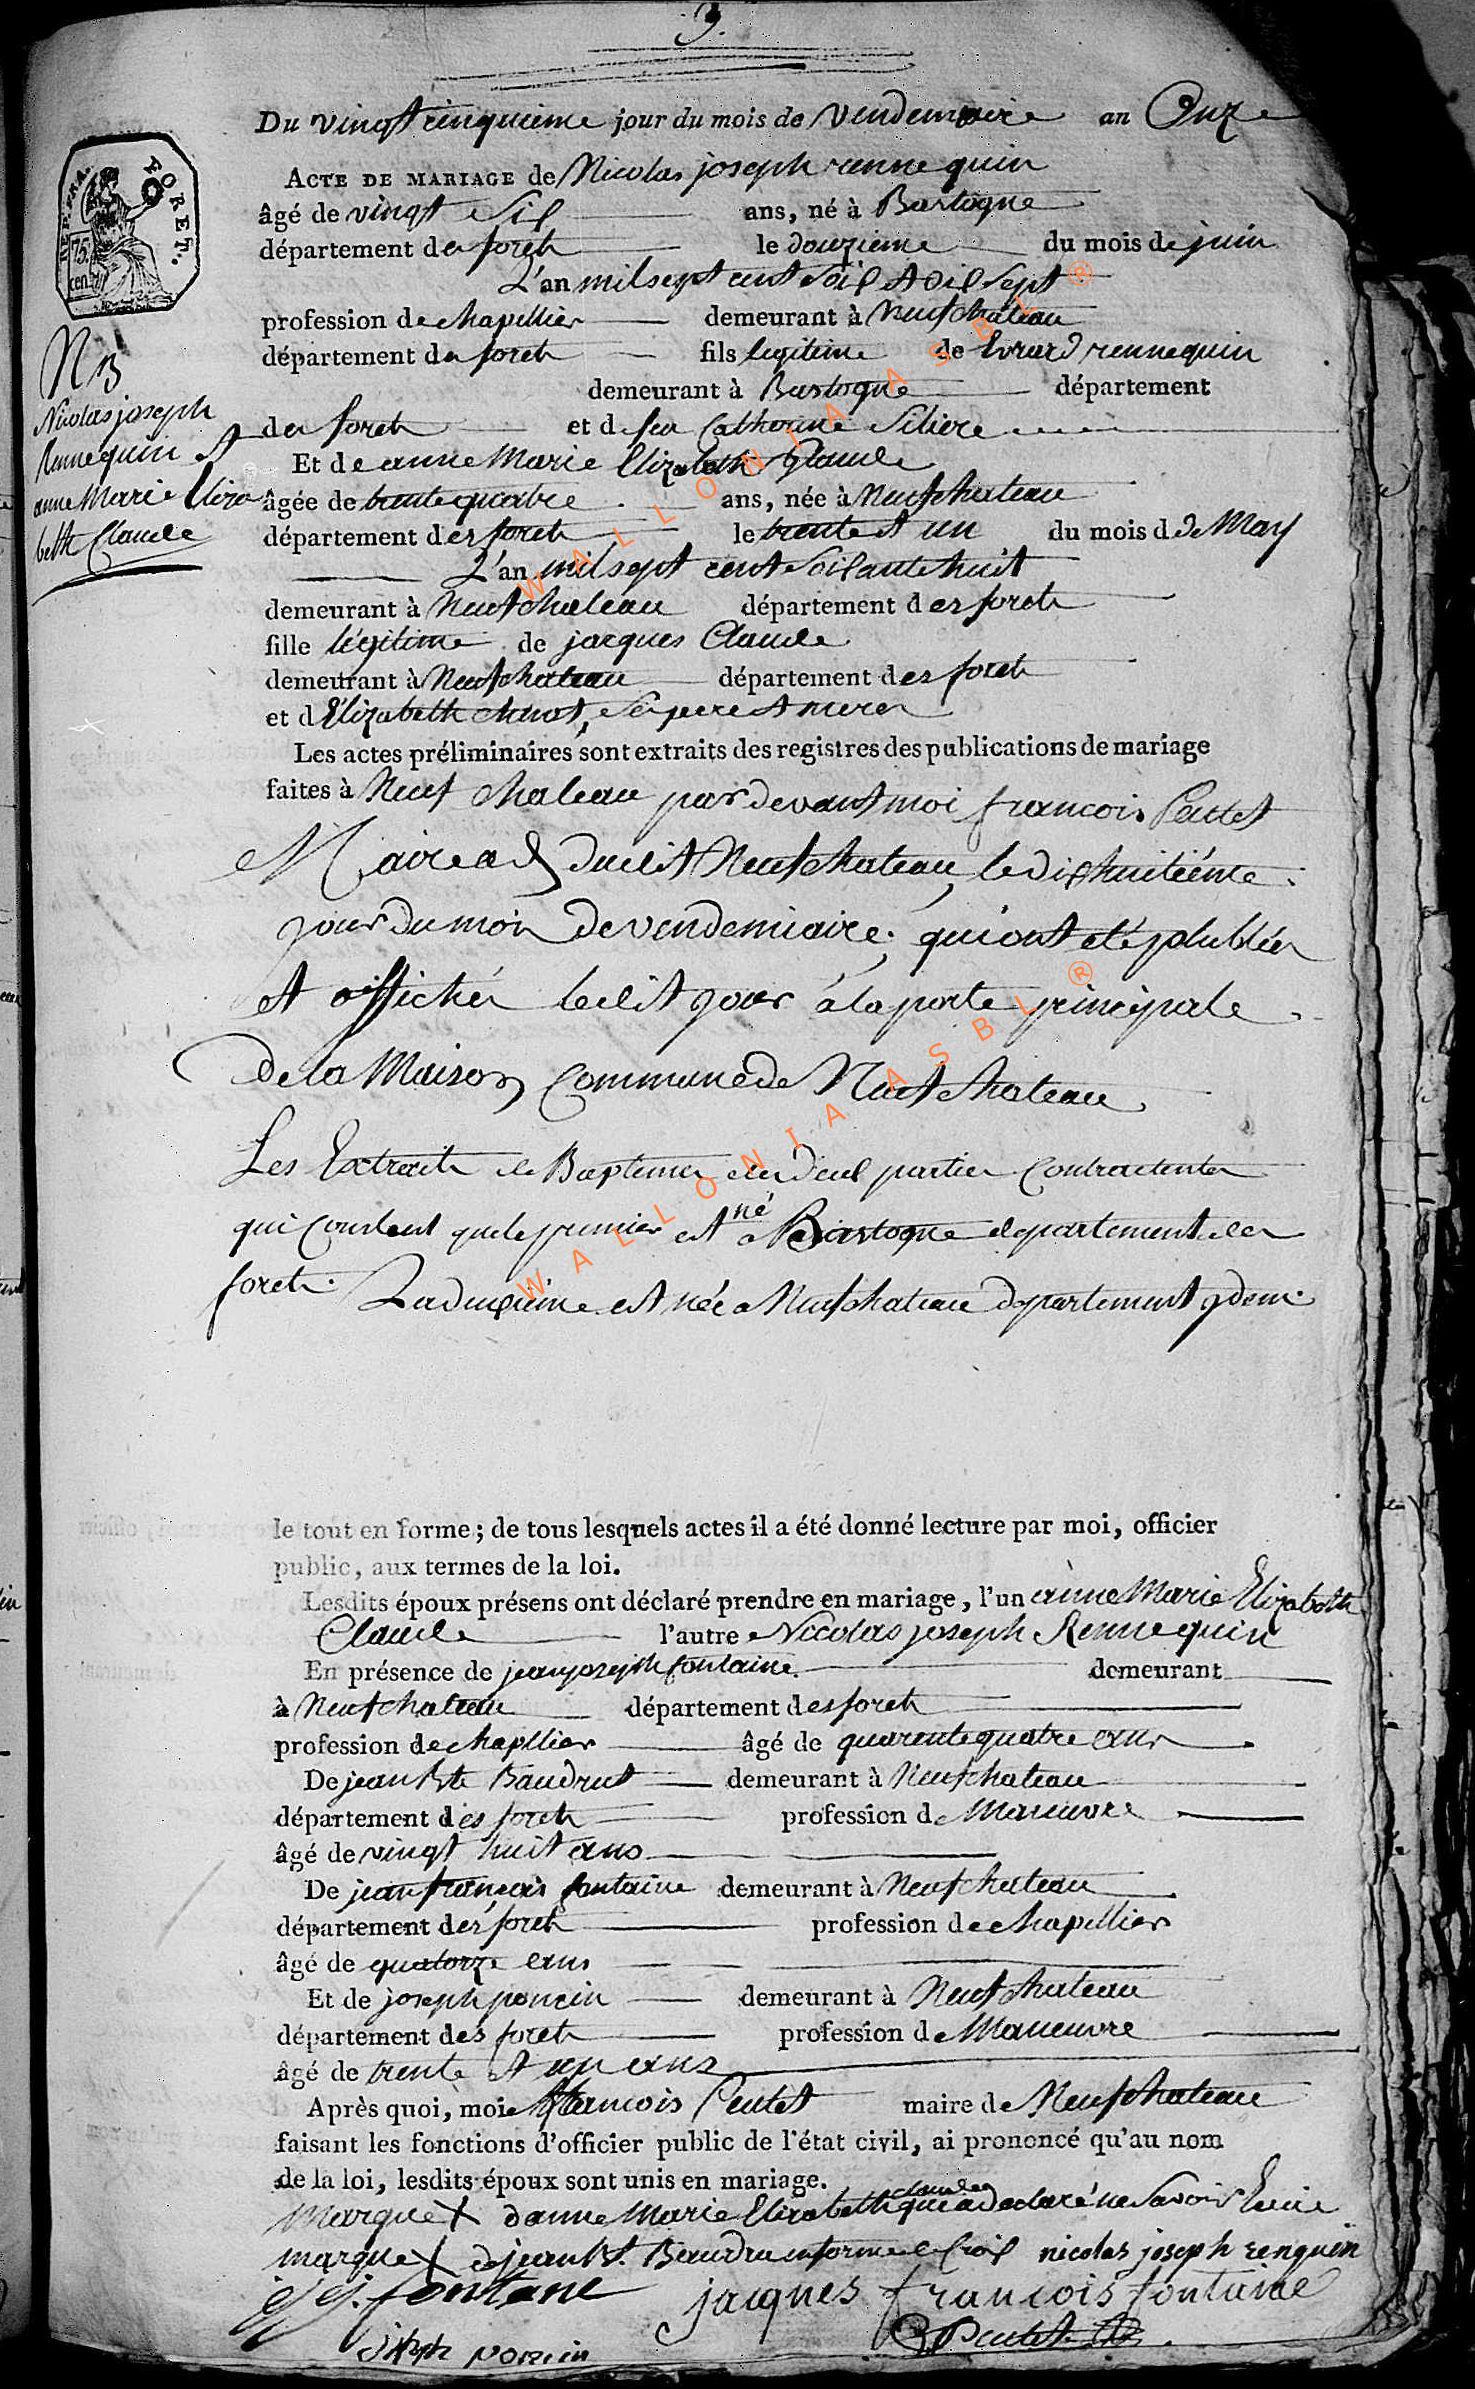 9.
Du vingt cinquieme jour du mois de vendemiaire an Onze
ACTE DE MARIAGE de Nicolas joseph rennequin
âgé de vingt Six ans, né à Bastogne
département des foret le douzieme du mois de juin
L'an mil sept cent Soix et dix Sept
profession de chapellier demeurant à Neufchateau
département des foret fils legitime de Evrard rennequin
demeurant à Bastogne département
des foret et d feu Catherine Siliere
Et de anne Marie Elizabeth Claude
âgée de trente quatre ans, née à Neufchateau
département des foret le trente et un du mois d de May
L'an mil sept cent Soixante huit
demeurant à Neufchateau département des foret
fille légitime de jacques Claude
demeurant à Neufchateau département des foret
et d Elizabeth, Ses pere et mere
Les actes préliminaires sont extraits des registres des publications de mariage
faites à Neuf chateau par devant moi francois Peutet
Maire dudit Neufchateau, le dix huitiéme
jour du mois de vendemiaire, qui ont eté publiées
et affichés ledit jour á la porte principale
De la Maison Commune de Neufchateau
Les Extraits de Baptemes des deux parties Contractentes
qui Constent que le premier est né a Bastogne departement des
foret. La deuxieme est née a Neufchateau departement ydem.
le tout en forme; de tous lesquels actes il a été donné lecture par moi, officier
public, aux termes de la loi.
Lesdits époux présens ont déclaré prendre en mariage, l'un anne Marie Elizabeth
Claude l'autre Nicolas joseph Rennequin
En présence de jean joseph fontaine demeurant
à Neufchateau département des foret
profession de chapellier âgé de quarente quatre ans
De jean Bte Baudrut demeurant à Neufchateau
département des foret profession de Maneuvre
âgé de vingt huit ans
De jean francois fontaine demeurant à Neufchateau
département des foret profession de chapellier
âgé de quatorze ans
Et de joseph poncin demeurant à Neufchateau
département des foret profession de Maneuvre
âgé de trente et un ans
Après quoi, moi francois Peutet maire de Neufchateau
faisant les fonctions d'officier public de l'état civil, ai prononcé qu'au nom
de la loi, lesdits époux sont unis en mariage.
Marque X d'anne Marie Elizabeth Claude qui a declaré ne Savoir Ecrire
marque X de jean Bt. Baudru en forme de Croix nicolas joseph renquin
j j. fontane jacques francois fontaine
joseph poncin Peutet
REP. FRA. FORET.
75 cen.
NB
Nicolas joseph
Rennequin et
anne Marie Eliza
beth Claude
WALLONIA ASBL ®
WALLONIA ASBL ®